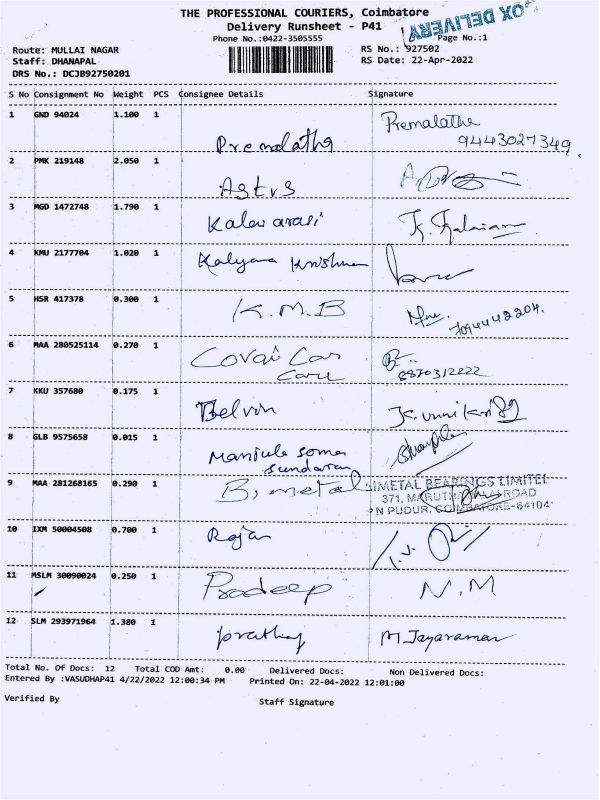 THE PROFESSIONAL COURIERS, Coimbatore
Delivery Runsheet - P41
OX DELIVERY
Phone No.:0422-3505555
Page No.:1
Route: MULLAI NAGAR
RS No.: 927502
Staff: DHANAPAL
RS Date: 22-Apr-2022
DRS No.: DCJB92750201
S No Consignment No Weight PCS Consignee Details Signature
1 GND 94024 1.100 1 Premalatha Premalatha
9443027349
2 PMK 219148 2.050 1
3 MGD 1472748 1.790 1 Kalaiarasi
4 KMU 2177704 1.020 1 Kalyana Krishnan
5 HSR 417378 0.300 1 K.M.B
7094442204.
6 MAA 280525114 0.270 1 Covai Car
Care
7 KKU 357680 0.175 1 Belvin
8 GLB 9575658 0.015 1 Manjula Soma
Sundaran
9 MAA 281268165 0.290 1 Bimetal BIMETAL BEARINGS LIMITED
371, MARUTHAMALAI ROAD
P N PUDUR, COIMBATORE-64104
10 IXM 50004508 0.700 1 Rajan
11 MSLM 30090024 0.250 1 Pradeep N.M
12 SLM 293971964 1.380 1 M.Jayaraman
Total No. Of Docs: 12 Total COD Amt: 0.00 Delivered Docs: Non Delivered Docs:
Entered By :VASUDHAP41 4/22/2022 12:00:34 PM Printed On: 22-04-2022 12:01:00
Verified By
Staff Signature